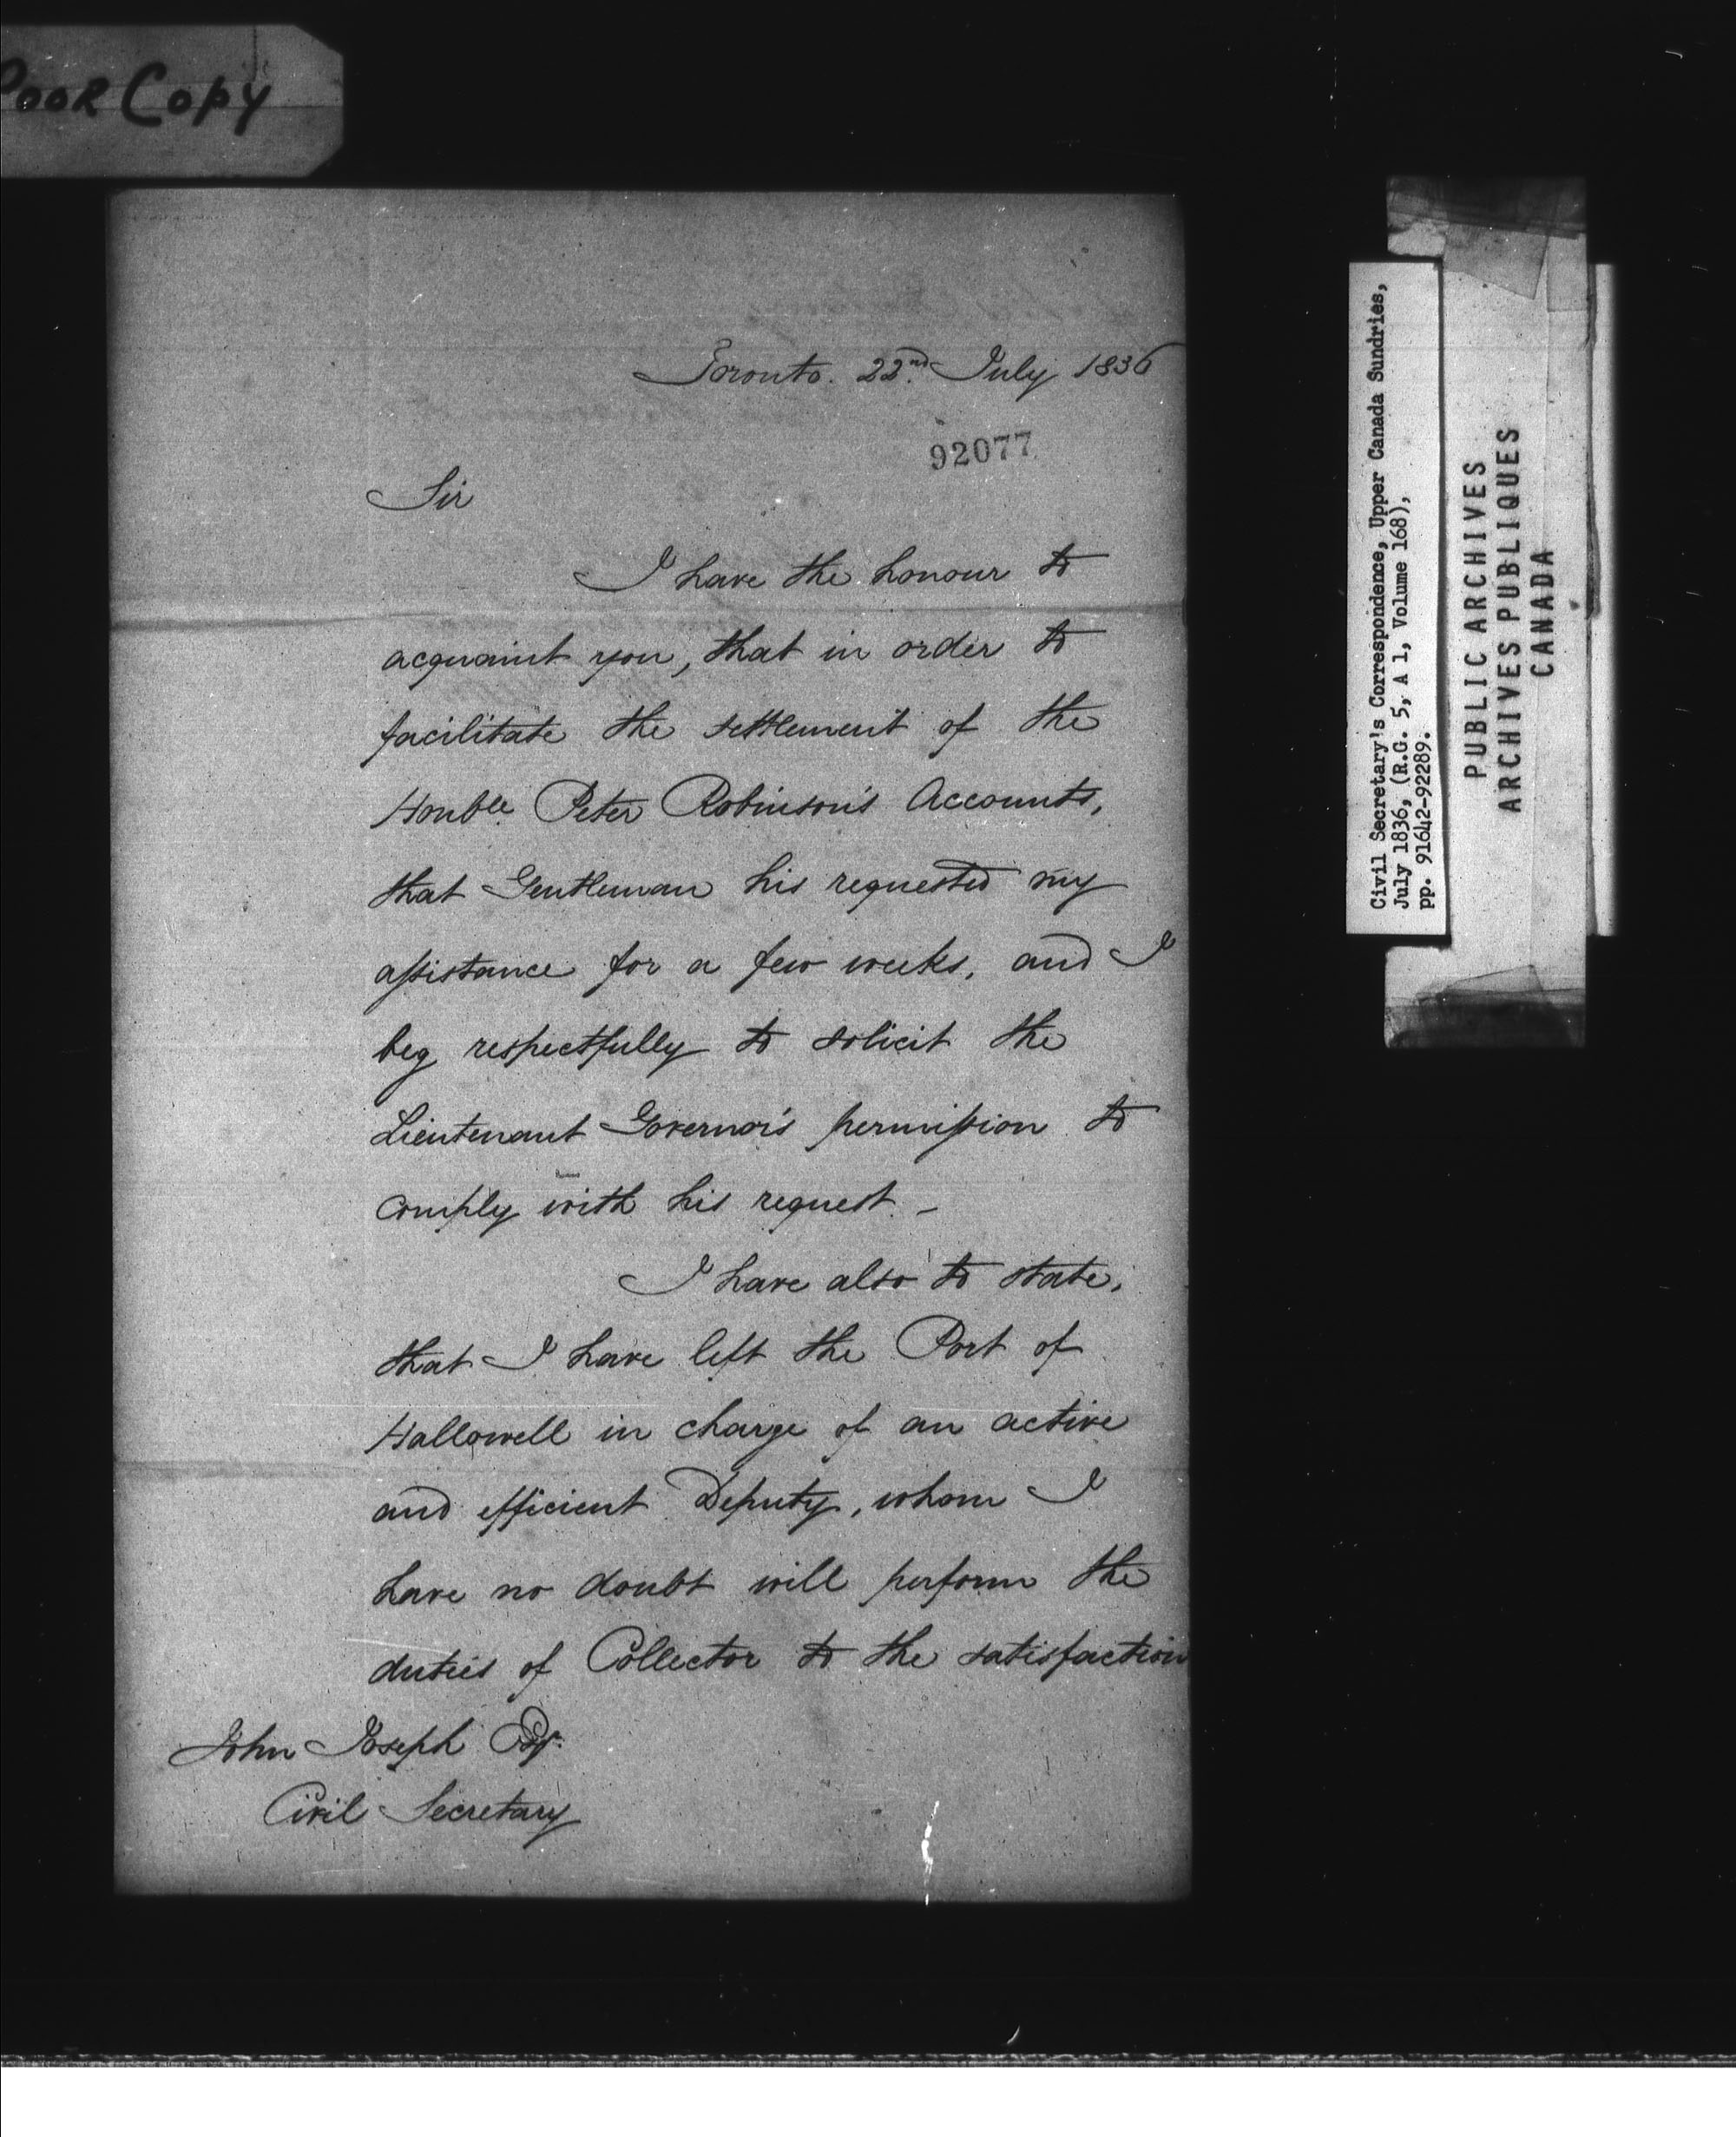 Poor Copy
Toronto. 22nd. July 1836
92077
Sir
I have the honour to
acquaint you, that in order to
facilitate the settlement of the
Honble Peter Robinson's Accounts,
that Gentleman his requested my
assistance for a few weeks, and I
beg respectfully to solicit the
Lieutenant Governor's permission to
comply with his request. -
I have also to state,
that I have left the Port of
Hallowell in charge of an active
and efficient Deputy, whom I
have no doubt will perform the
duties of Collector to the satisfaction
John Joseph Esqr.
Civil Secretary
Civil Secretary's Correspondence, Upper Canada Sundries,
July 1836, (R.G. 5, A 1, Volume 168),
pp. 91642-92289.
PUBLIC ARCHIVES
ARCHIVES PUBLIQUES
CANADA